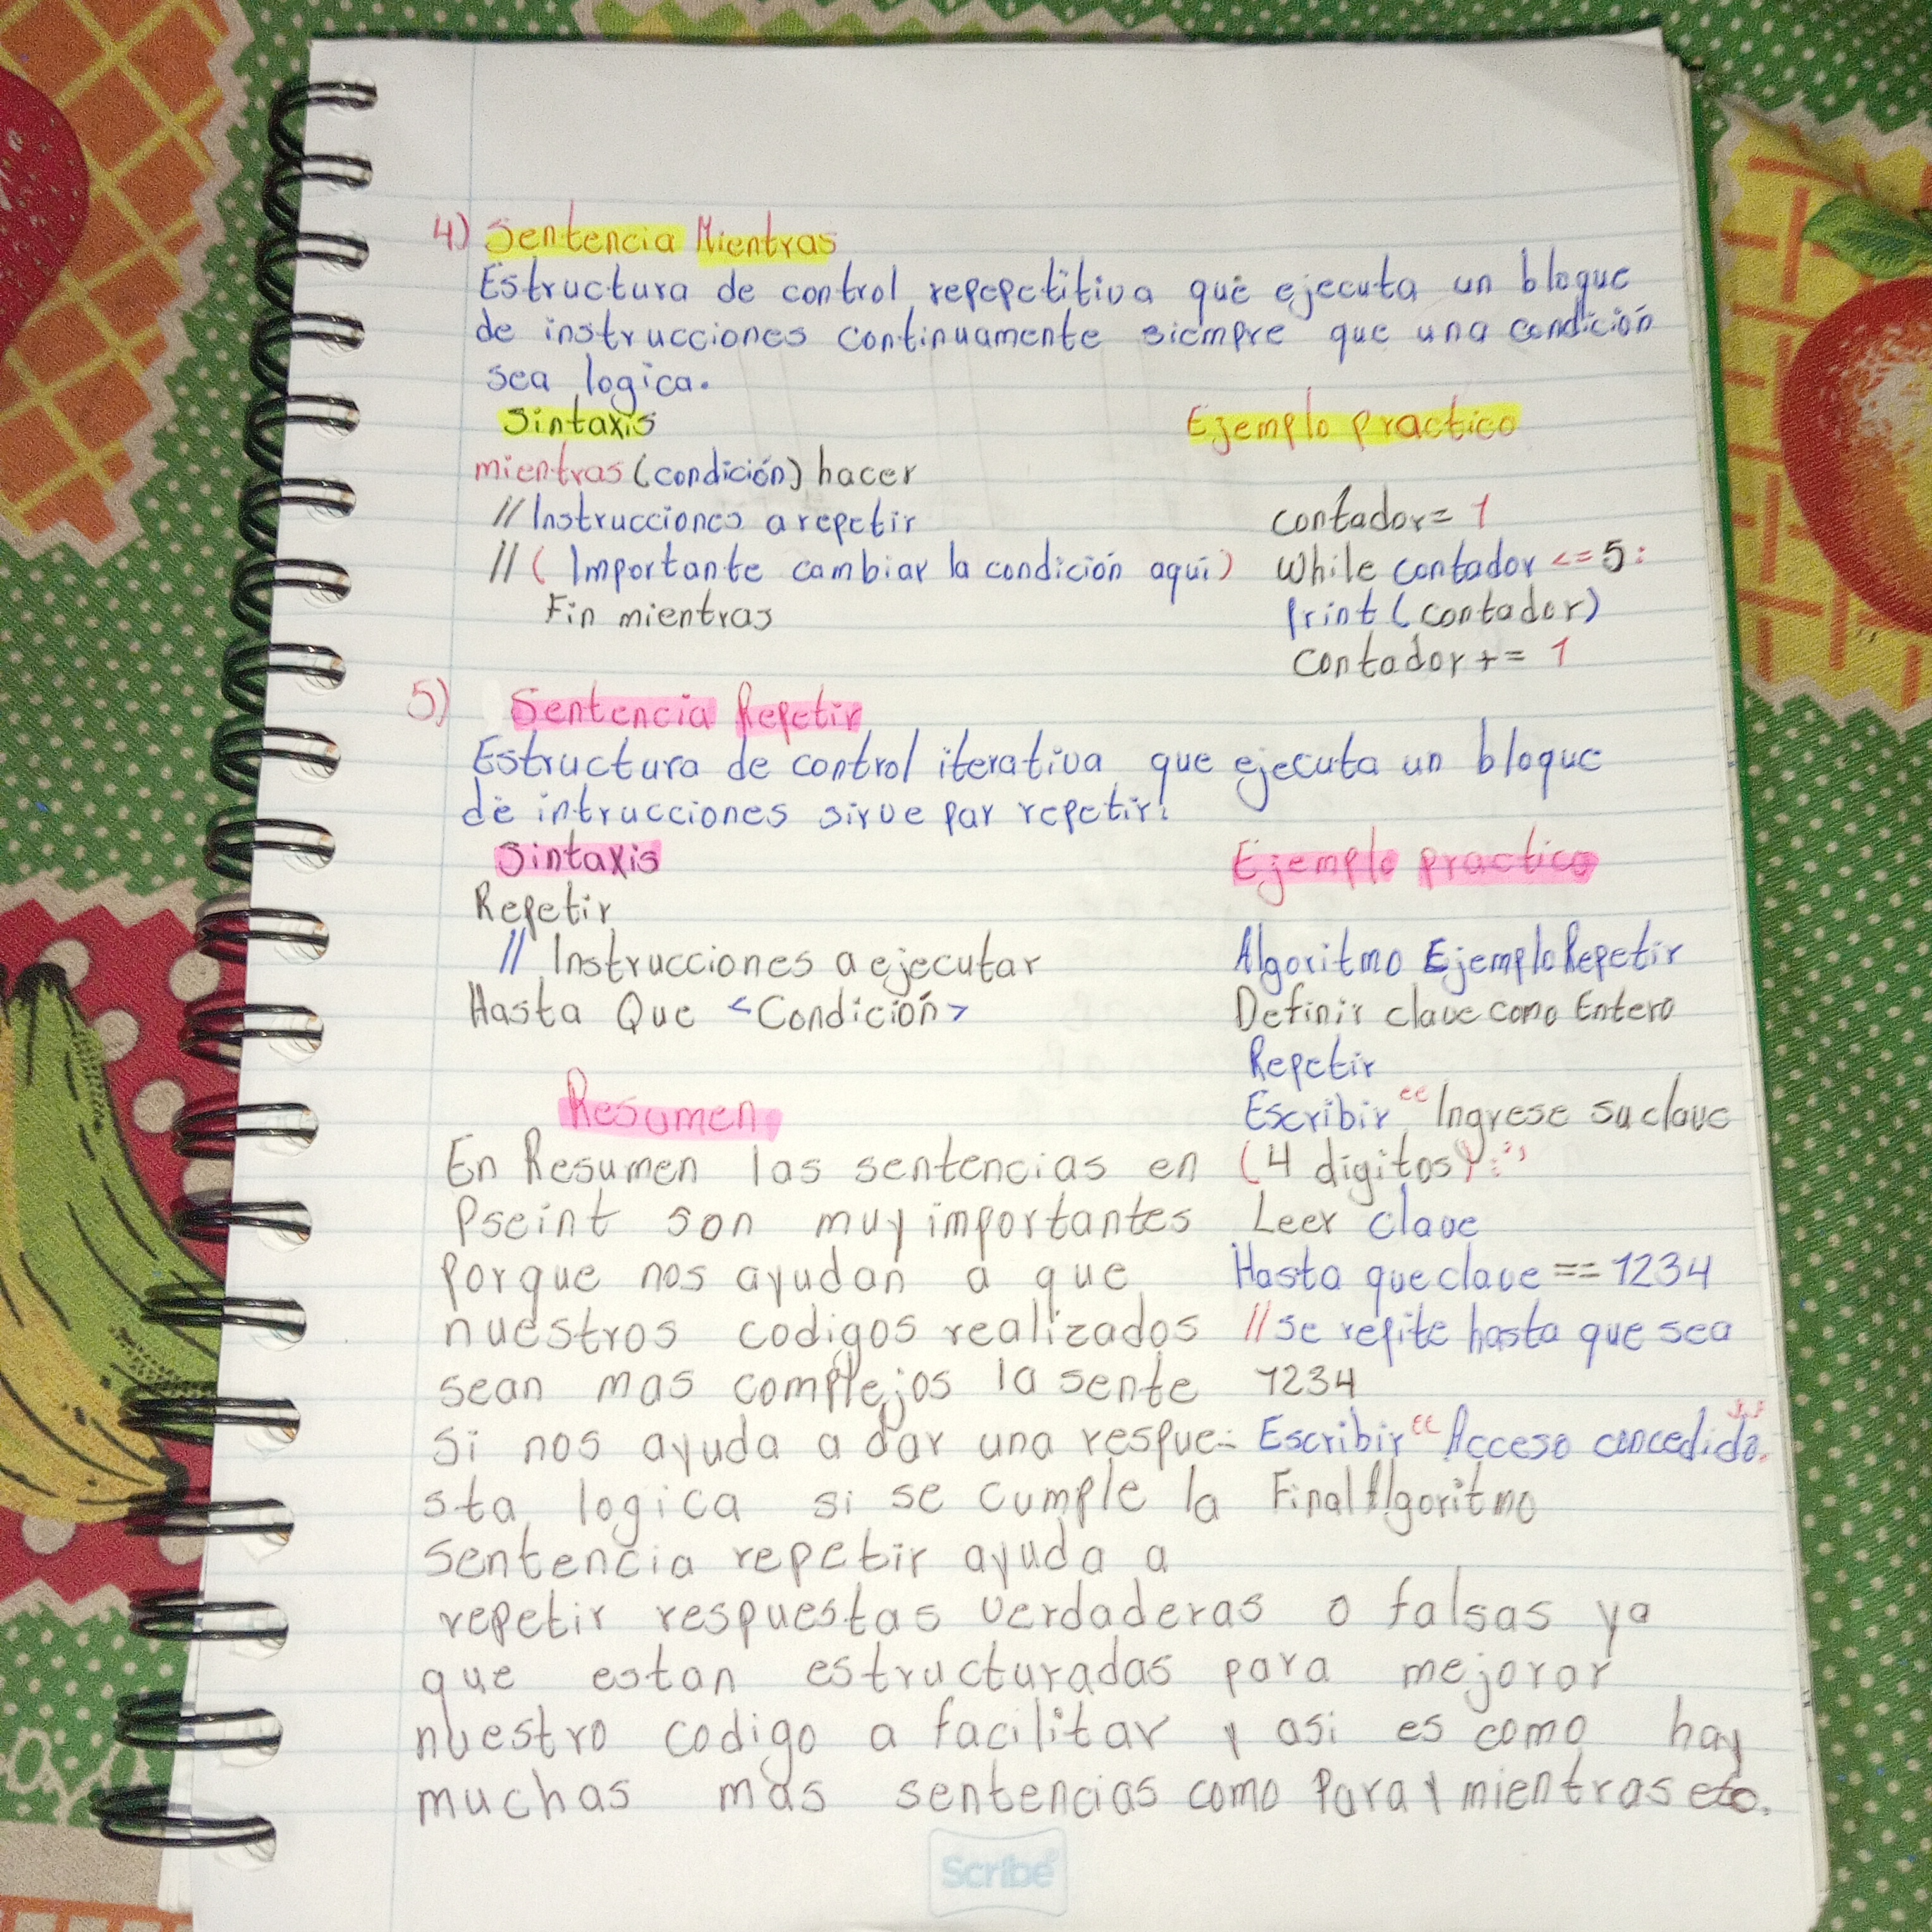 4) Sentencia Mientras
Estructura de control repepetitiva que ejecuta un bloque
de instrucciones continuamente siempre que una condición
sea logica.
Sintaxis
mientras (condición) hacer
// Instrucciones a repetir
// ( Importante cambiar la condición aqui)
Fin mientras
Ejemplo practico
contador= 1
While contador <= 5:
Print (contador)
contador += 1
5) Sentencia Repetir
Estructura de control iterativa que ejecuta un bloque
de intrucciones sirve par repetir.
Sintaxis
Repetir
// Instrucciones a ejecutar
Hasta Que <Condición>
Ejemplo practico
Algoritmo EjemploRepetir
Definir clave como Entero
Repetir
Escribir "Ingrese su clave
(4 digitos):"
Leer clave
Hasta que clave == 1234
// se repite hasta que sea
1234
Escribir "Acceso concedido."
Final Algoritmo
Resumen
En Resumen las sentencias en
Pseint son muy importantes
Porque nos ayudan a que
nuestros codigos realizados
sean mas complejos la sente
si nos ayuda a dar una respue-
sta logica si se cumple la
sentencia repetir ayuda a
repetir respuestas verdaderas o falsas ya
que estan estructuradas para mejorar
nuestro codigo a facilitar y asi es como hay
muchas mas sentencias como Para y mientras etc.
Scribe